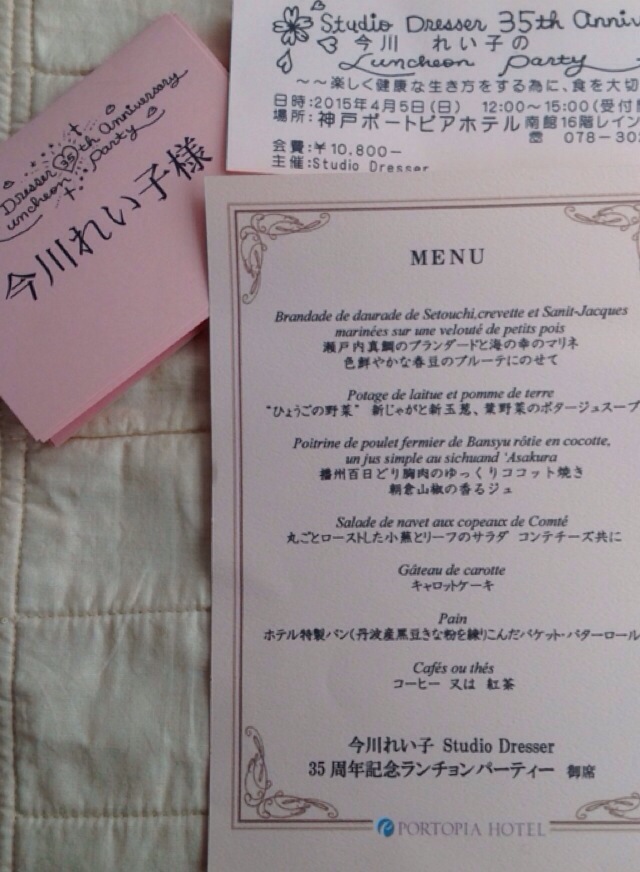 Dresser 35th Anniversary
Luncheon party
今川れい子様
Studio Dresser 35th
今川 れい子の
Luncheon party
～～楽しく健康な生き方をする為に、食を大切
日時:2015年4月5日(日) 12:00～15:00(受付
場所:神戸ポートピアホテル 南館16階レイン
☎ 078-30
会費:¥10,800-
主催:Studio Dresser
MENU
Brandade de daurade de Setouchi,crevette et Sanit-Jacques
marinées sur une velouté de petits pois
瀬戸内真鯛のブランダードと海の幸のマリネ
色鮮やかな春豆のブルーテにのせて
Potage de laitue et pomme de terre
"ひょうごの野菜" 新じゃがと新玉葱、葉野菜のポタージュスープ
Poitrine de poulet fermier de Bansyu rôtie en cocotte,
un jus simple au sichuand 'Asakura
播州百日どり胸肉のゆっくりココット焼き
朝倉山椒の香るジュ
Salade de navet aux copeaux de Comté
丸ごとローストした小蕪とリーフのサラダ コンテチーズ共に
Gâteau de carotte
キャロットケーキ
Pain
ホテル特製パン(丹波産黒豆きな粉を練りこんだバケット・バターロール
Cafés ou thés
コーヒー 又は 紅茶
今川れい子 Studio Dresser
35周年記念ランチョンパーティー 御席
PORTOPIA HOTEL